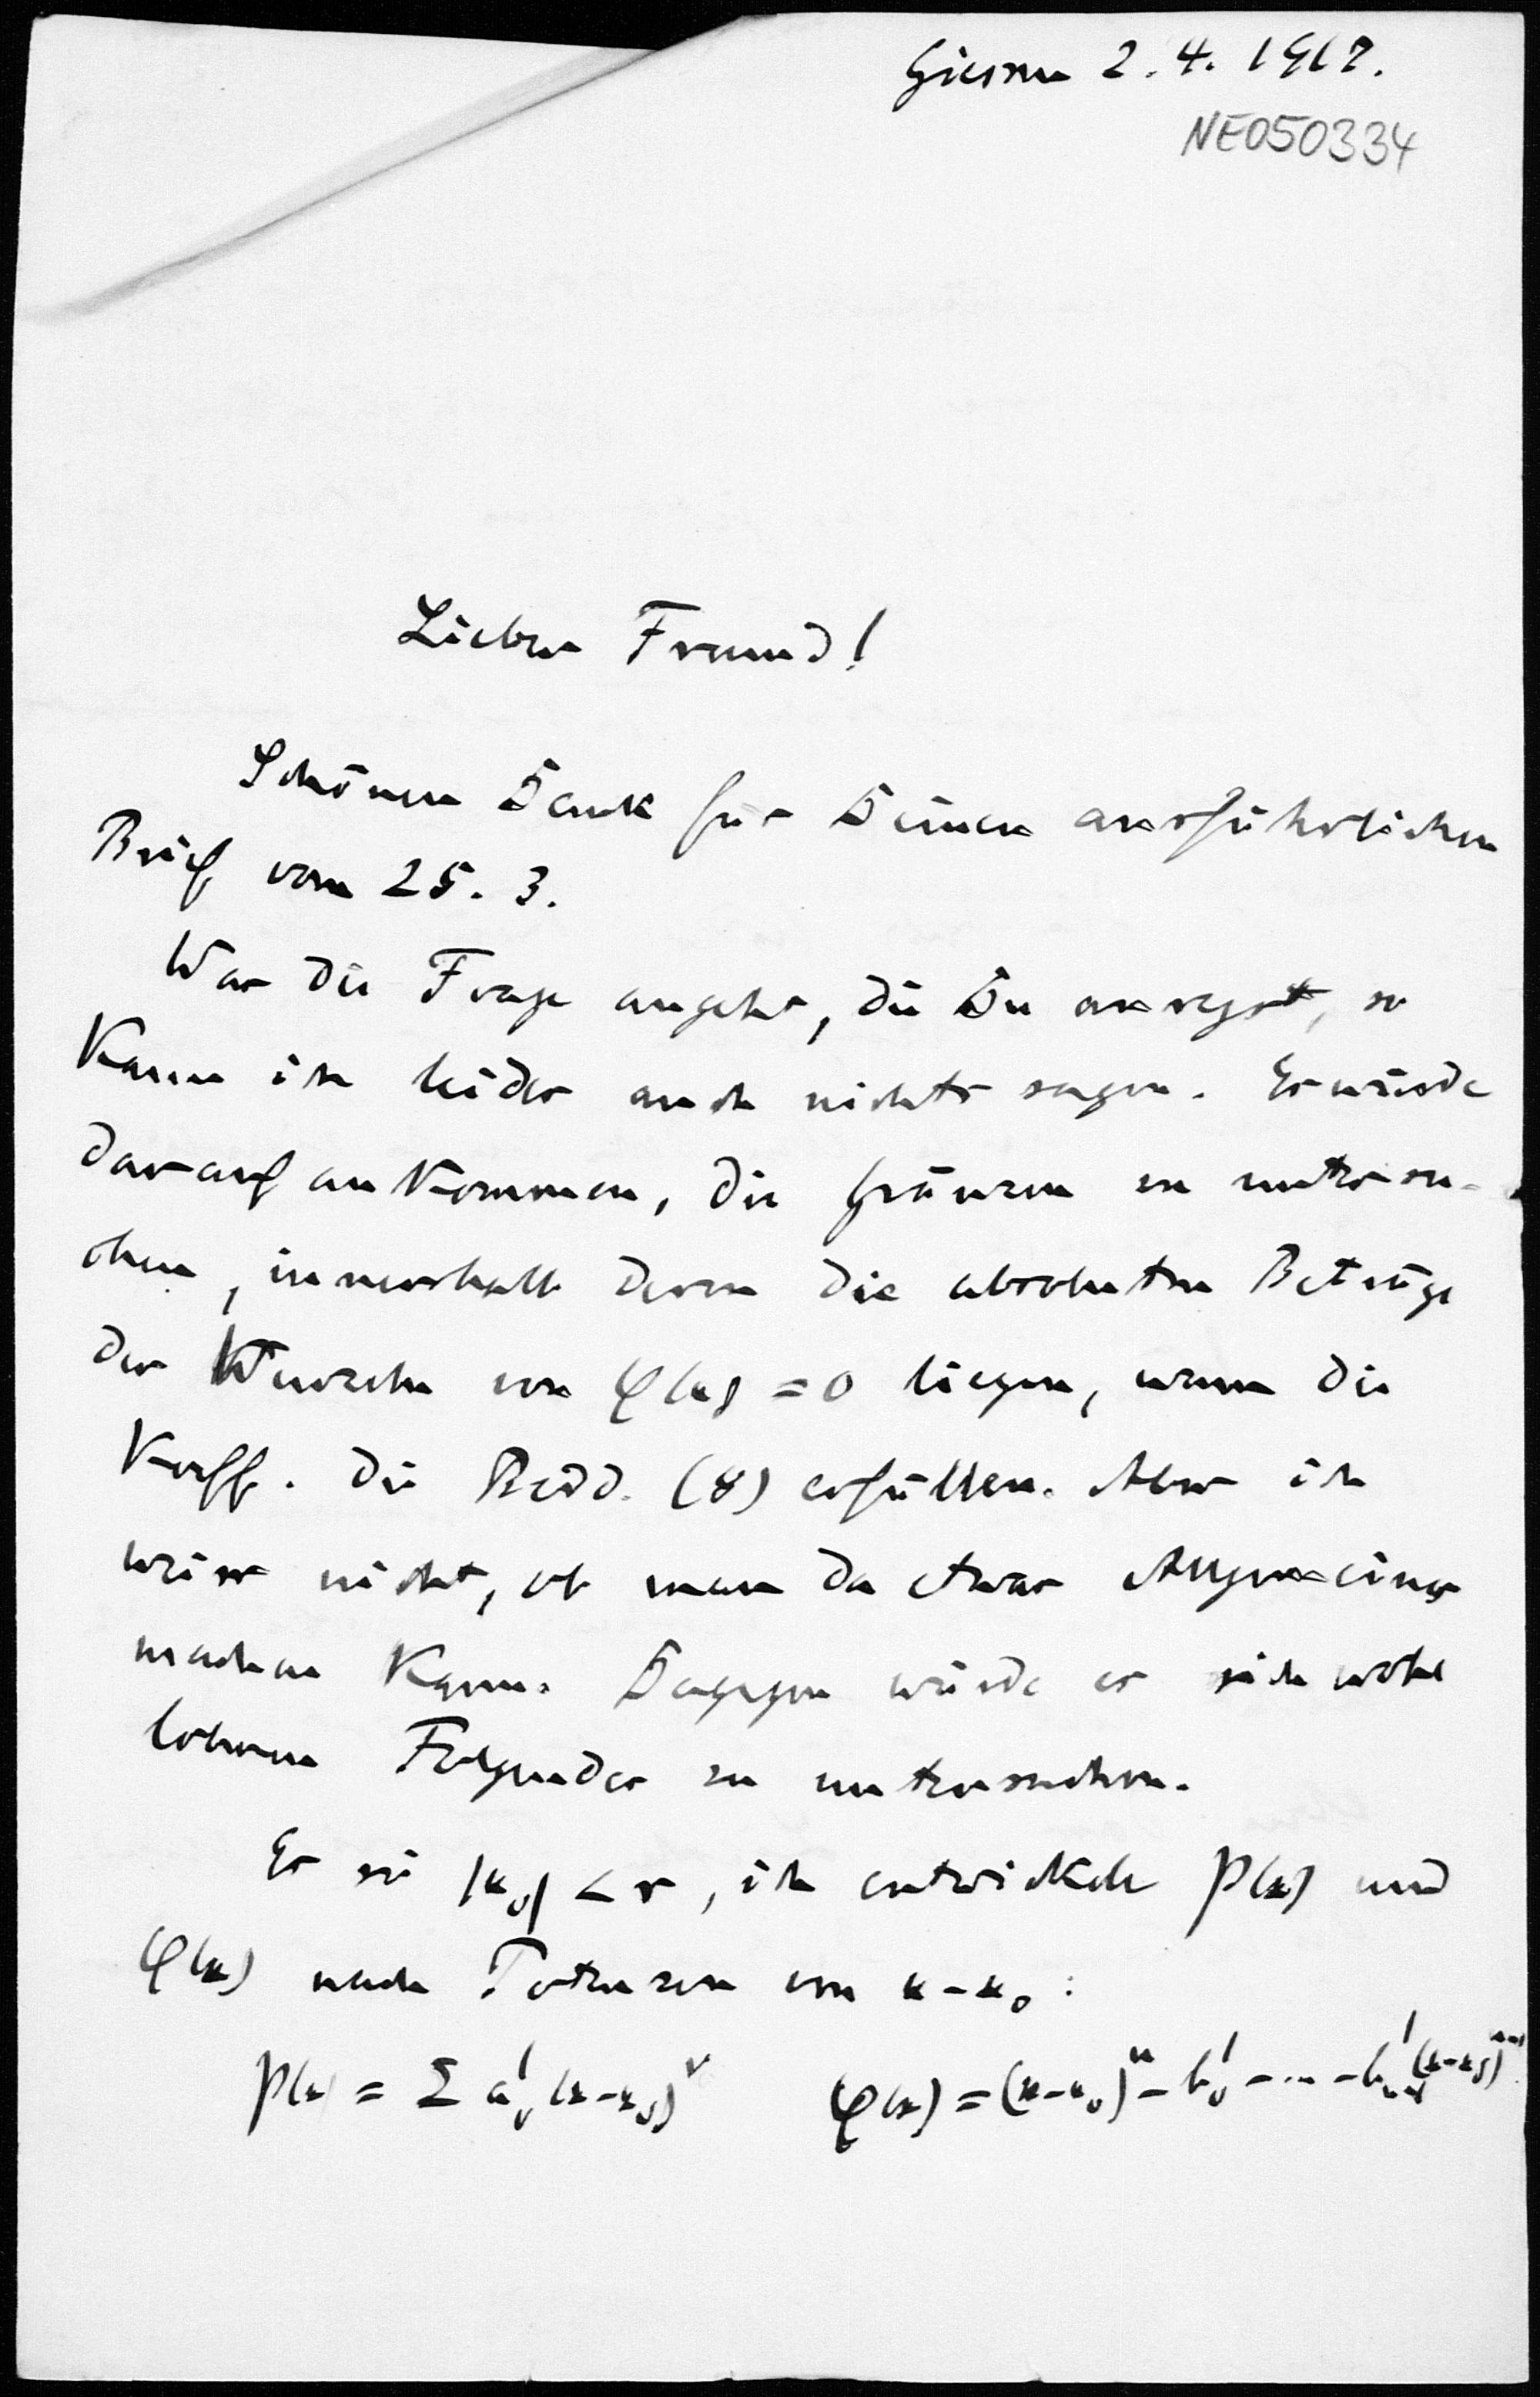 Giessen 2. 4. 1917.
NE050334
Lieber Freund!
Schönen Dank für Deinen ausführlichen
Brief vom 25. 3.
Was die Frage angeht, die Du anregst, so
kann ich leider auch nichts sagen. Es würde
darauf ankommen, die Gränzen zu untersu-
chen, innerhalb deren die absoluten Beträge
der Wurzeln von φ(x) = 0 liegen, wenn die
Koeff. die Bedd. (8) erfüllen. Aber ich
weiss nicht, ob man da etwas Allgemeines
machen kann. Dagegen würde es sich wohl
lohnen Folgendes zu untersuchen.
Es sei |x₀| < r, ich entwickele P(x) und
φ(x) nach Potenzen von x-x₀:
P(x) = Σ a'ᵥ (x-x₀)ᵛ φ(x) = (x-x₀)ⁿ - b'₀ - ... - b'ₙ₋₁(x-x₀)ⁿ⁻¹